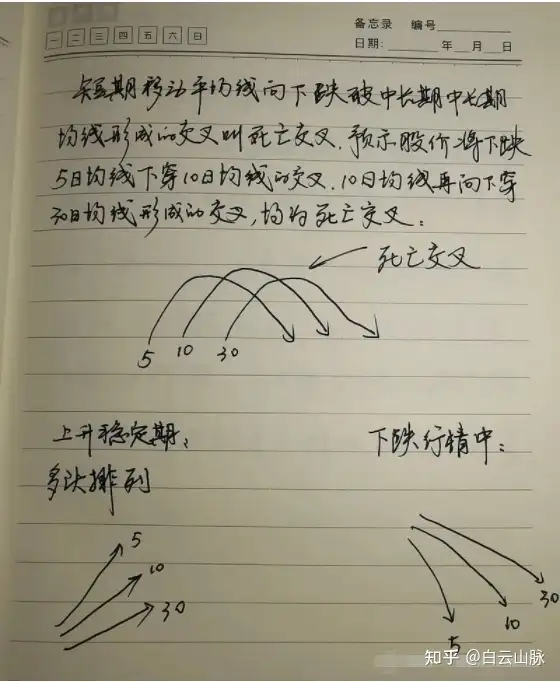 备忘录 编号
一 二 三 四 五 六 日
日期: 年 月 日
短期移动平均线向下跌破中长期中长期
均线形成的交叉叫死亡交叉.预示股价将下跌
5日均线下穿10日均线的交叉.10日均线再向下穿
30日均线形成的交叉,均为死亡交叉:
死亡交叉
5 10 30
上升稳定期: 下跌行情中:
多头排列
5
10
30
30
10
5
知乎 @白云山脉